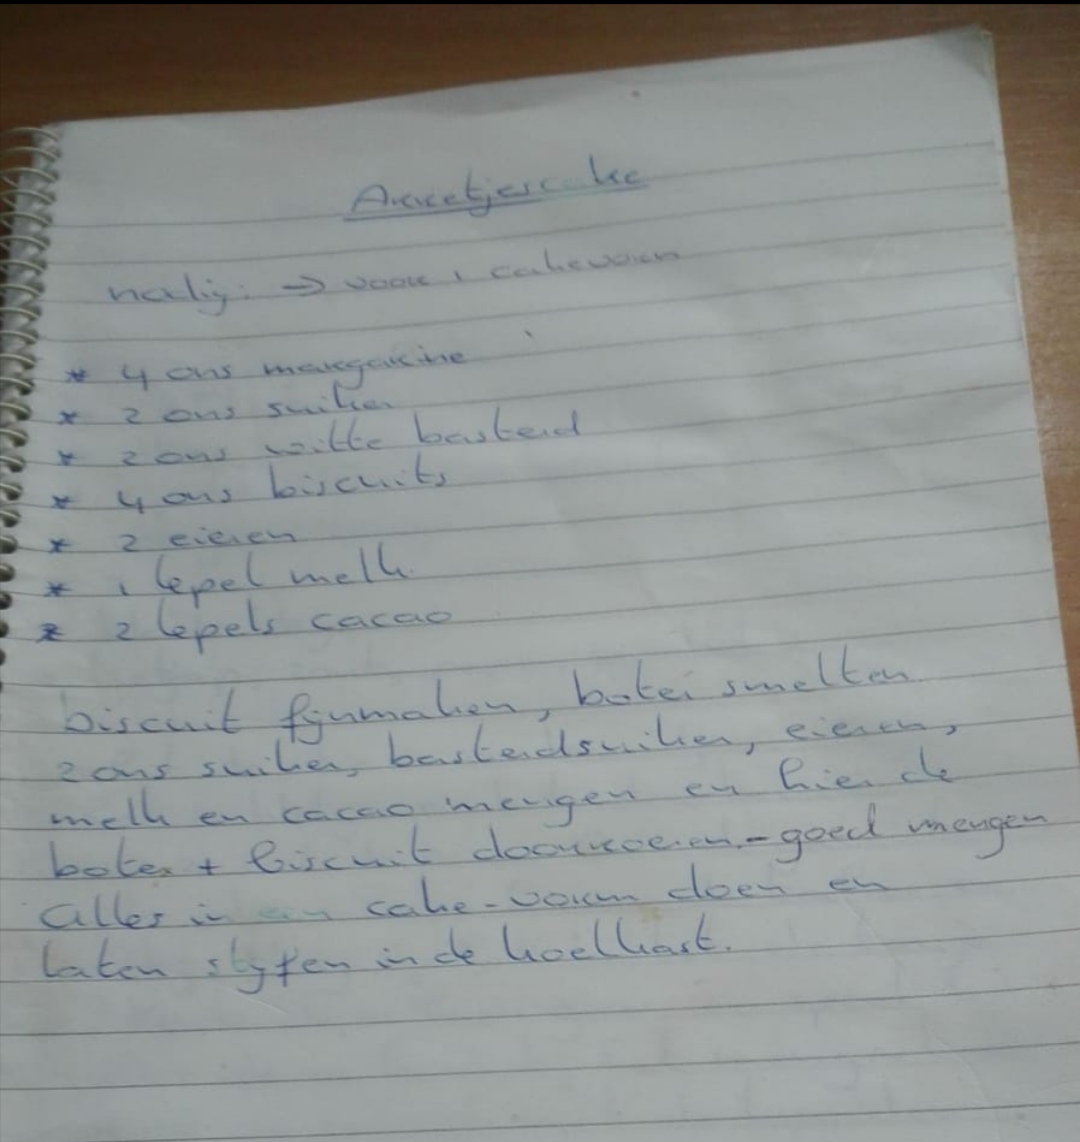 Arretjescake
nodig: → voor 1 cakevorm
* 4 ons margarine
* 2 ons suiker
* 2 ons witte basterd
* 4 ons biscuits
* 2 eieren
* 1 lepel melk
* 2 lepels cacao
biscuit fijnmaken, boter smelten
2 ons suiker, basterdsuiker, eieren,
melk en cacao mengen en hier de
boter + biscuit doorroeren - goed mengen
alles in een cake-vorm doen en
laten styfen in de koelkast.